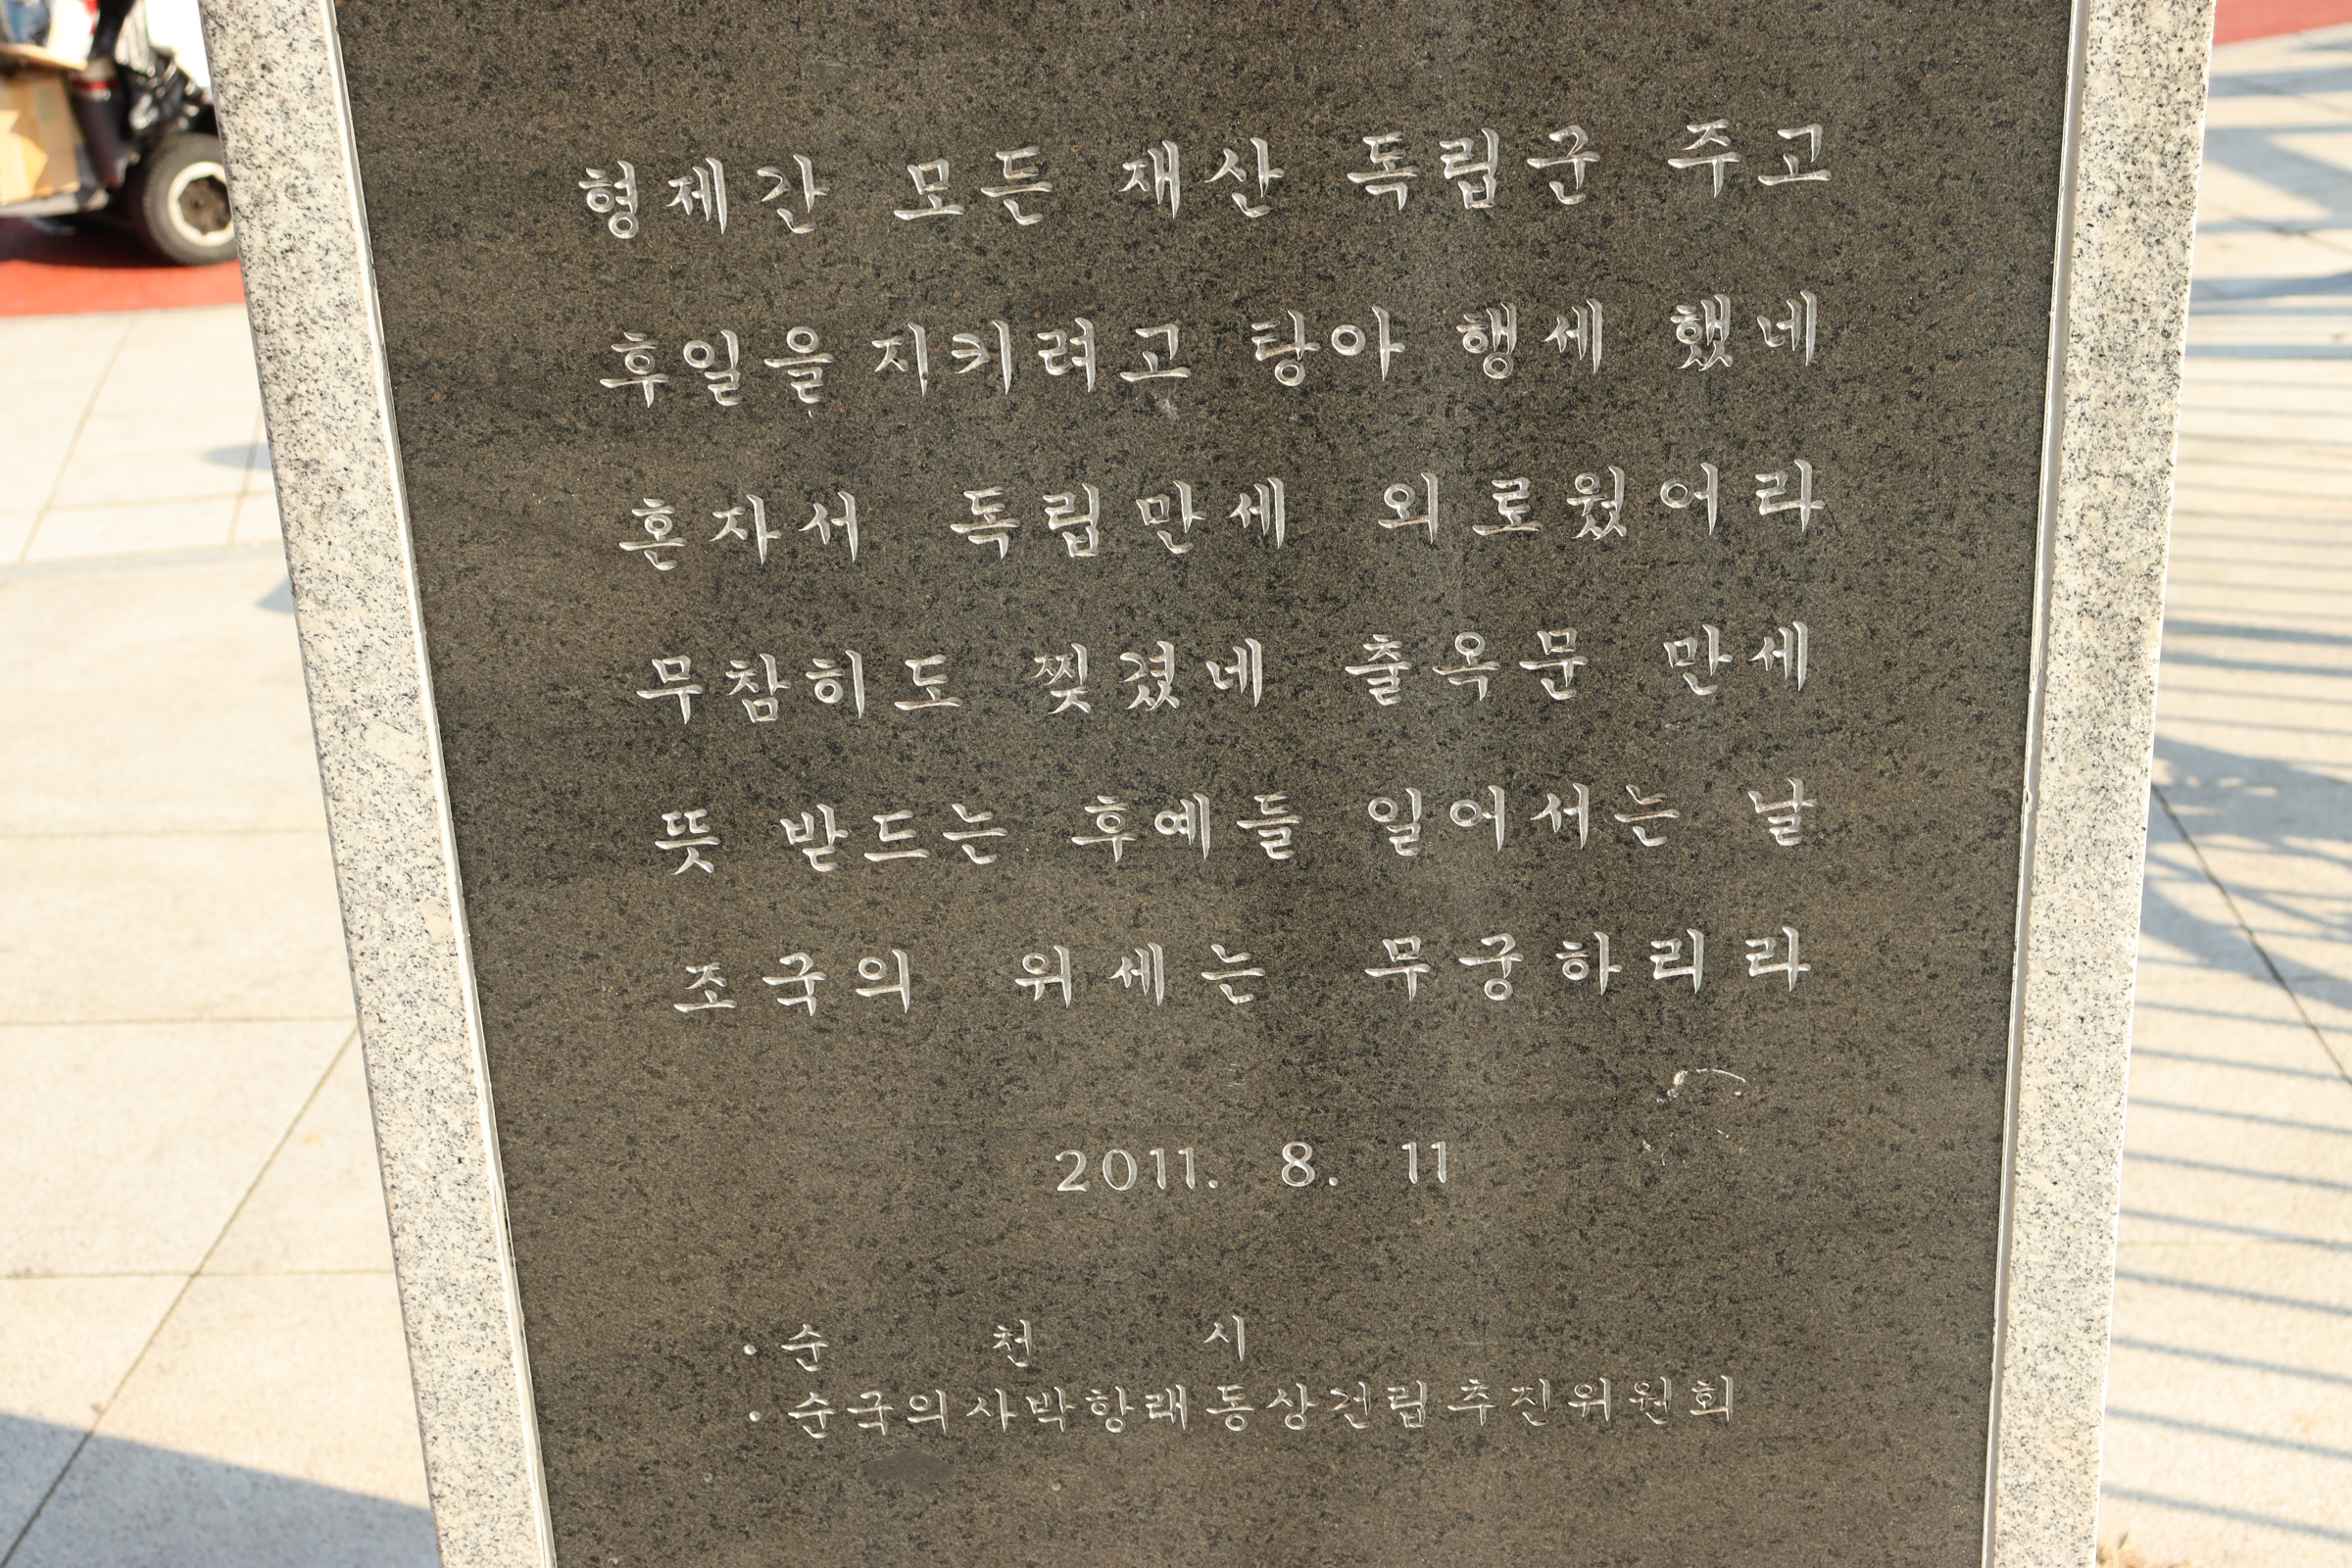 형제간 모든 재산 독립군 주고
후일을 지키려고 탕아 행세 했네
혼자서 독립만세 외로웠어라
무참히도 찢겼네 출옥문 만세
뜻 받드는 후예들 일어서는 날
조국의 위세는 무궁하리라
2011. 8. 11
· 순 천 시
· 순국의사박항래동상건립추진위원회